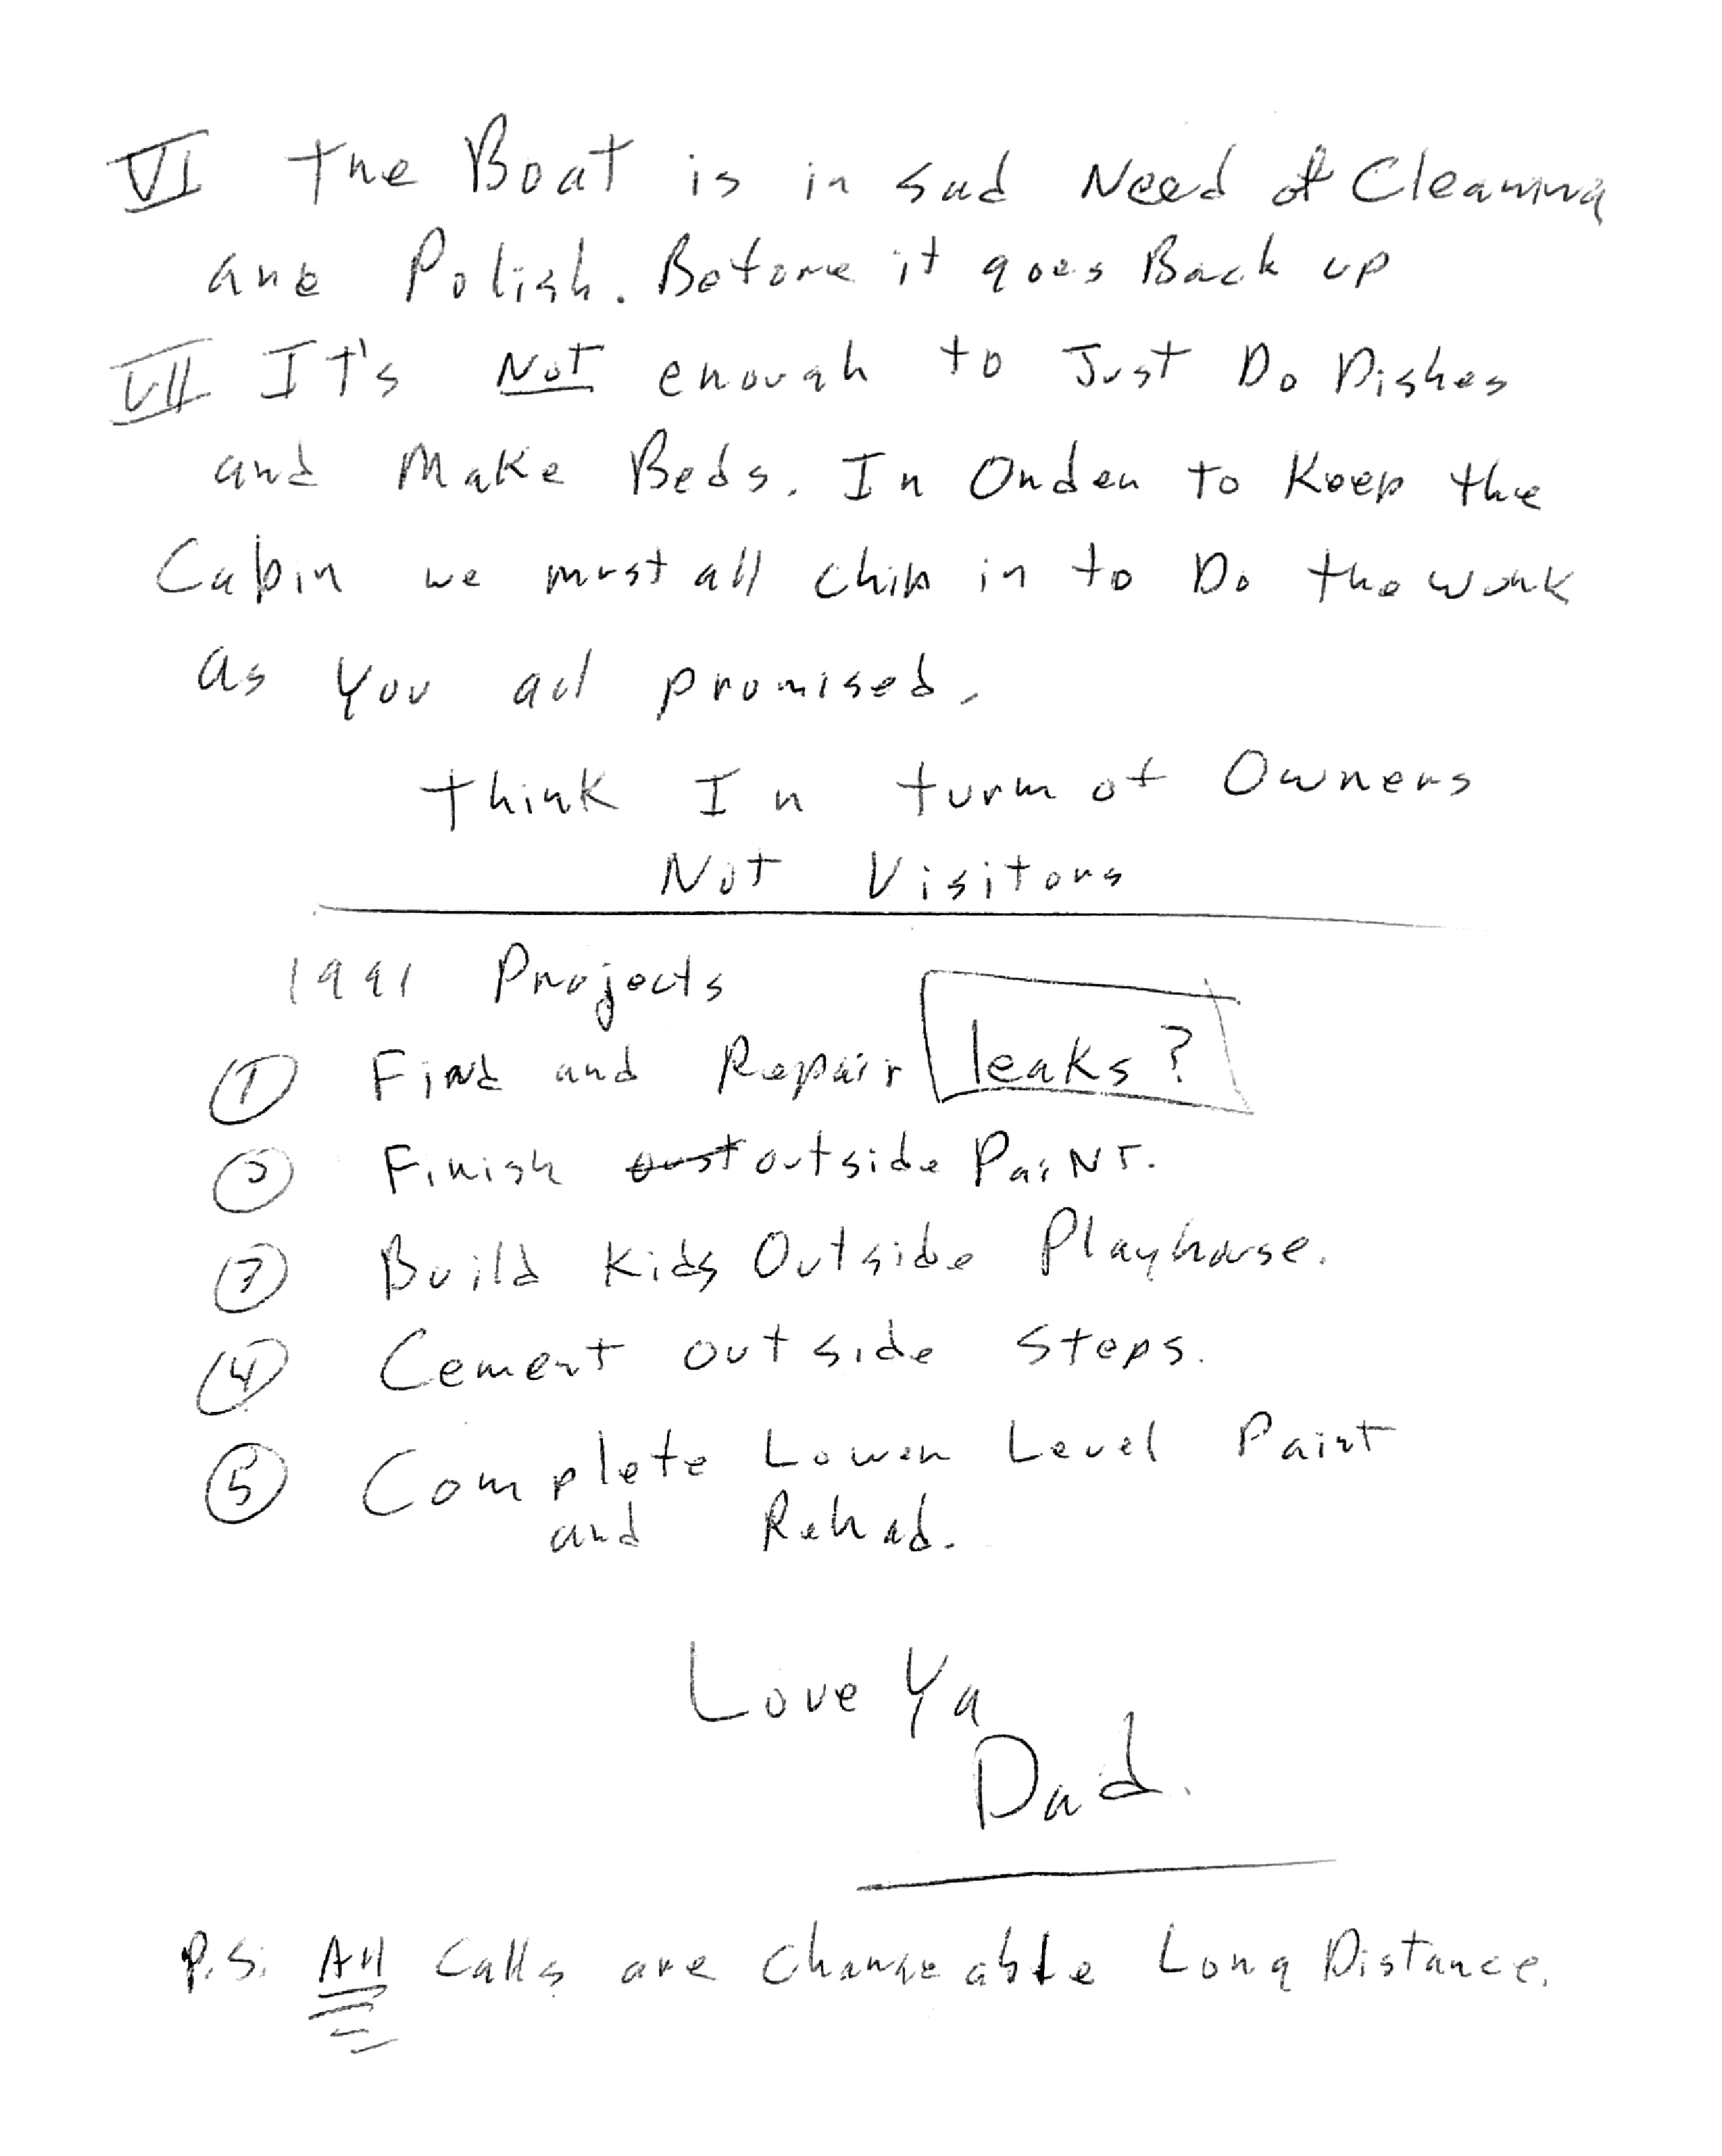 VI The Boat is in sad Need of Cleaning
and Polish. Before it goes Back up
VII It's Not enough to Just Do Dishes
and Make Beds. In Order to Keep the
Cabin we must all chip in to Do the work
as You all promised.
Think In turm of Owners
Not Visitors
1991 Projects
① Find and Repair leaks?
② Finish oust outside PaiNT.
③ Build Kids Outside Playhouse.
④ Cement outside Steps.
⑤ Complete Lower Level Paint
and Rehab.
Love Ya
Dad.
P.S. All Calls are Chargeable Long Distance.